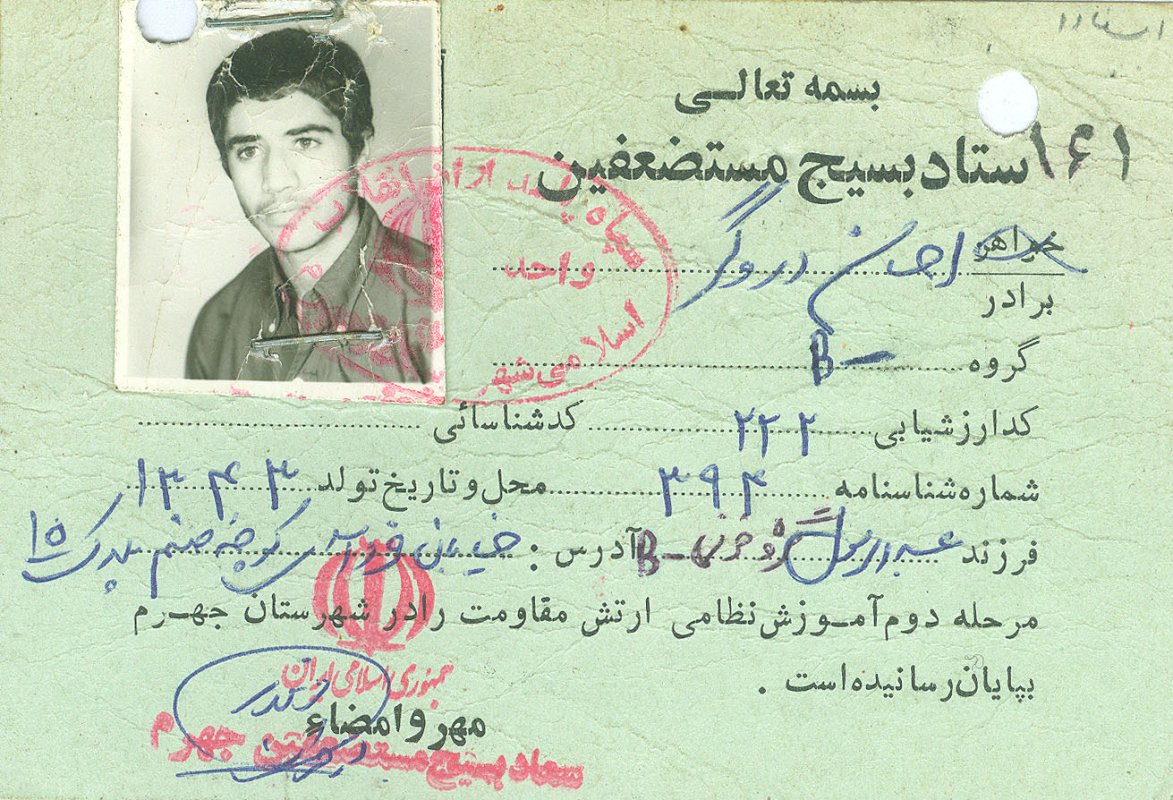 بسمه تعالی
۱۶۱ ستاد بسیج مستضعفین
خواهر
برادر درودگر
گروه B-
کد ارزشیابی ۲۲۲ کد شناسائی
شماره شناسنامه ۳۹۴ محل و تاریخ تولد ۱۳۴۳
فرزند عبدالرسول گروه خونی B- آدرس : خیابان فردوسی کوچه صنم پلاک ۱۵
مرحله دوم آموزش نظامی ارتش مقاومت را در شهرستان جهرم
بپایان رسانیده است .
جمهوری اسلامی ایران
مهر و امضاء
ستاد بسیج مستضعفین جهرم
سپاه پاسداران انقلاب
واحد
اسلامی شهر